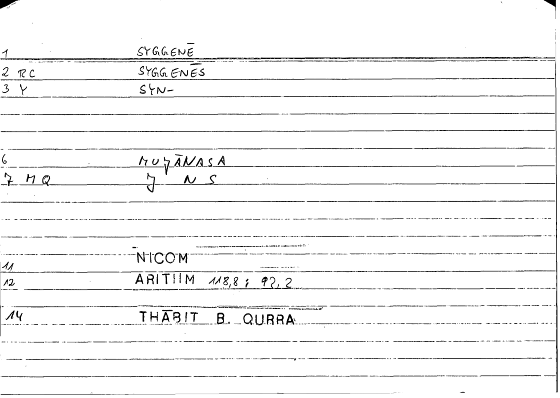 1 SYGGENĒ
2 RC SYGGENĒS
3 Y SYN-
6 MUJĀNASA
7 MQ J N S
11 NICOM
12 ARITIIM 118,8 ; 92,2
14 THĀBIT B. QURRA